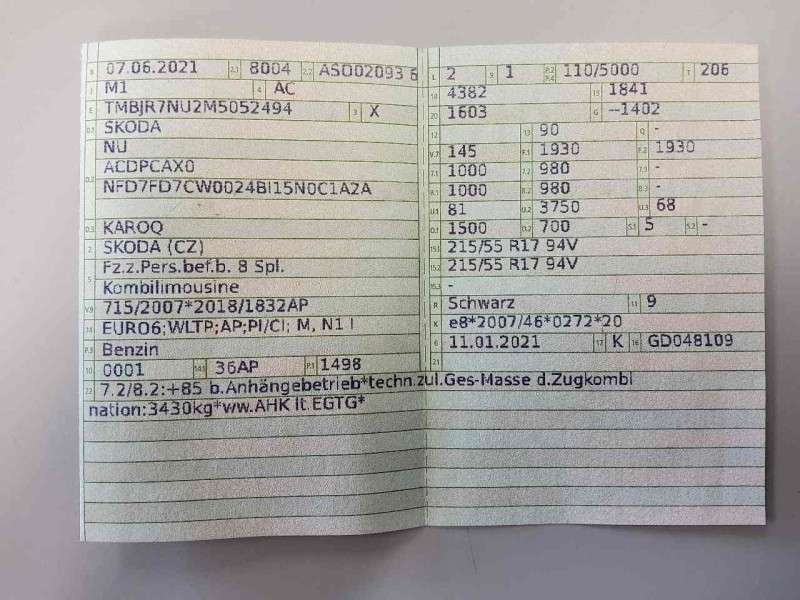 B 07.06.2021 2.1 8004 2.2 ASO02093 6
J M1 4 AC
E TMBJR7NU2M5052494 3 X
D.1 SKODA
NU
D.2 ACDPCAX0
NFD7FD7CW0024BI15N0C1A2A
D.3 KAROQ
2 SKODA (CZ)
5 Fz.z.Pers.bef.b. 8 Spl.
Kombilimousine
V.9 715/2007*2018/1832AP
14 EURO6;WLTP;AP;PI/CI; M, N1 I
P.3 Benzin
10 0001 14.1 36AP P.1 1498
22 7.2/8.2:+85 b.Anhängebetrieb*techn.zul.Ges-Masse d.Zugkombi
nation:3430kg*ww.AHK lt.EGTG*
L 2 9 1 P.2 P.4 110/5000 T 206
18 4382 19 1841
20 1603 G --1402
12 13 90 Q -
V.7 145 F.1 1930 F.2 1930
7.1 1000 7.2 980 7.3 -
8.1 1000 8.2 980 8.3 -
U.1 81 U.2 3750 U.3 68
O.1 1500 O.2 700 S.1 5 S.2 -
15.1 215/55 R17 94V
15.2 215/55 R17 94V
15.3 -
R Schwarz 11 9
K e8*2007/46*0272*20
6 11.01.2021 17 K 16 GD048109
21